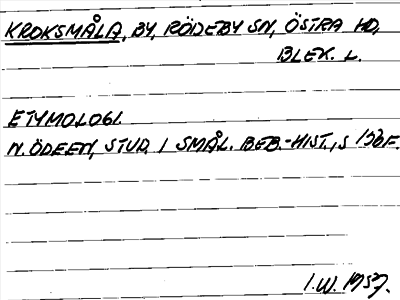 KROKSMÅLA, BY, RÖDEBY SN, ÖSTRA HD,
BLEK. L.
ETYMOLOGI.
N. ÖDEEN, STUD. I SMÅL. BEB.-HIST., S 136F.
I.W. 1957.